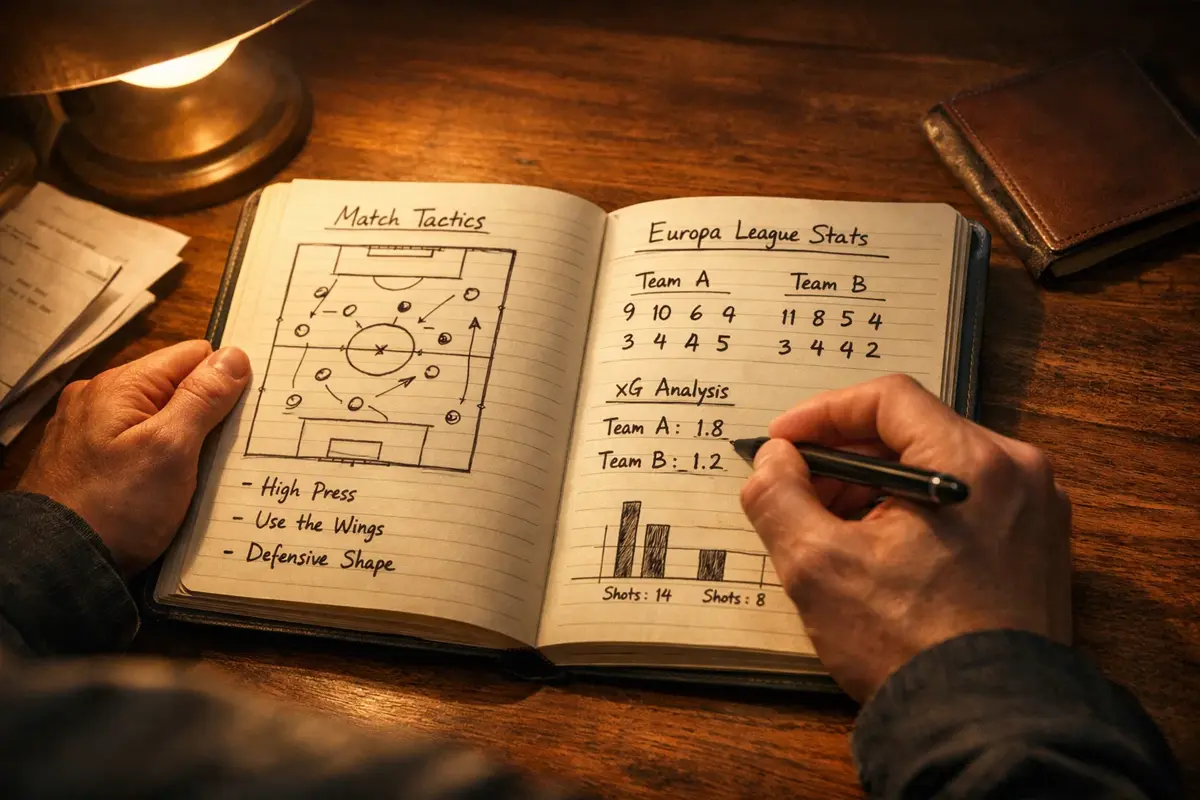 Match Tactics
- High Press
- Use the Wings
- Defensive Shape
Europa League Stats
Team A Team B
9 10 6 9 11 8 5 4
3 4 4 5 3 4 4 2
xG Analysis
Team A: 1.8
Team B: 1.2
Shots: 14 Shots: 8